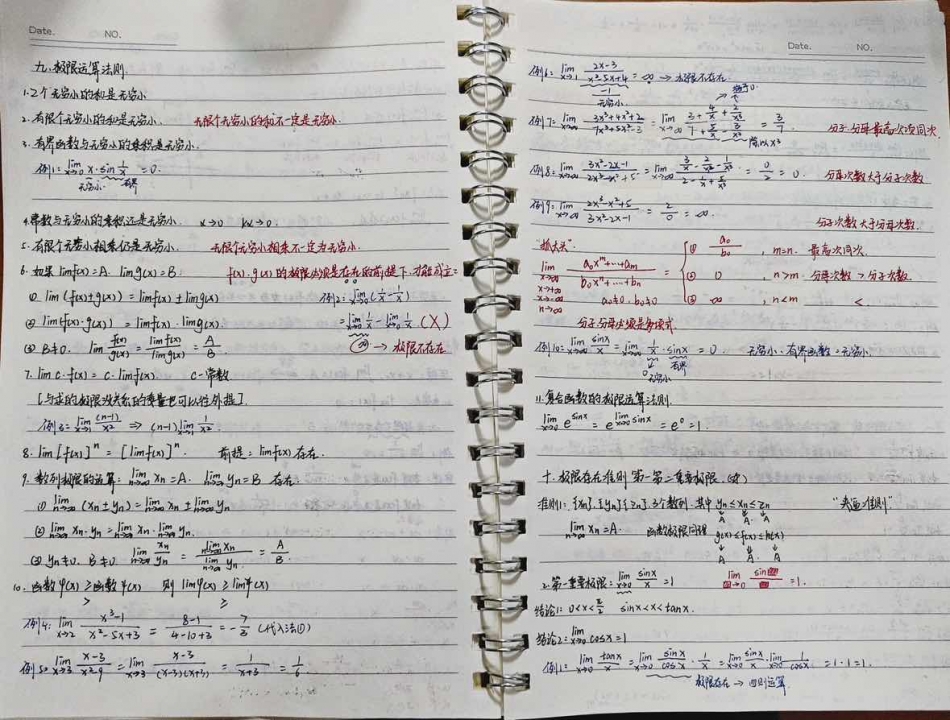 Date. NO.
九、极限运算法则.
1. 2个无穷小的和是无穷小
2. 有限个无穷小的和是无穷小. 无限个无穷小的和不一定是无穷小.
3. 有界函数与无穷小的乘积是无穷小.
例1: lim x→0 x·sin 1/x = 0.
无穷小 有界
4. 常数与无穷小的乘积还是无穷小. x→0 kx→0.
5. 有限个无穷小相乘仍是无穷小. 无限个无穷小相乘不一定为无穷小.
6. 如果 limf(x)=A. limg(x)=B. f(x). g(x) 的极限必须是存在的前提下,才能成立:
① lim (f(x)±g(x)) = limf(x) ± limg(x) 例2: lim x→0 (1/x - 1/x)
② lim(f(x)·g(x)) = limf(x)·limg(x). = lim x→0 1/x - lim x→0 1/x (X)
③ B≠0. lim f(x)/g(x) = limf(x)/limg(x) = A/B. ∞ → 极限不存在
7. lim c·f(x) = c·limf(x). c-常数
[与求的极限没关系的变量也可以往外提]
例3: lim x→1 (n-1)/x² ⇒ (n-1) lim x→1 1/x²
8. lim [f(x)]ⁿ = [limf(x)]ⁿ. 前提: limf(x) 存在.
9. 数列极限的运算: lim n→∞ xn = A. lim n→∞ yn = B 存在.
① lim n→∞ (xn ± yn) = lim n→∞ xn ± lim n→∞ yn
② lim n→∞ xn·yn = lim n→∞ xn·lim n→∞ yn.
③ yn≠0. B≠0 lim n→∞ xn/yn = lim n→∞ xn / lim n→∞ yn = A/B.
10. 函数 φ(x) ≥ 函数 ψ(x) 则 limφ(x) ≥ limψ(x)
> ≥
例4: lim x→2 x³-1 / x²-5x+3 = 8-1 / 4-10+3 = -7/3 (代入法①)
例5: lim x→3 x-3 / x²-9 = lim x→3 x-3 / (x-3)(x+3) = 1/x+3 = 1/6
Date. NO.
例6: lim x→1 2x-3 / x²-5x+4 = ∞ → 极限不存在.
-1
无穷小
例7: lim x→∞ 3x³+4x²+2 / 7x³+5x²-3 = lim x→∞ 3+4/x+2/x³ / 7+5/x-3/x³ = 3/7 分子.分母最高次项同次
除以x³
例8: lim x→∞ 3x²-2x-1 / 2x³-x²+5 = lim x→∞ 3/x-2/x²-1/x³ / 2-1/x+5/x³ = 0/2 = 0. 分母次数大于分子次数
例9: lim x→∞ 2x³-x²+5 / 3x²-2x-1 = 2/0 = ∞.
分子次数大于分母次数.
"抓大头".
① a₀/b₀ , m=n. 最高次同次.
lim x→∞ x→+∞ x→-∞ n→∞ a₀xᵐ+…+am / b₀xⁿ+…+bn = ② 0 , n>m. 分母次数 > 分子次数.
a₀≠0. b₀≠0 ③ ∞ , n<m <
分子.分母必须是多项式.
例10: lim x→∞ sinx/x = lim x→∞ 1/x · sinx = 0 无穷小·有界函数=无穷小.
0 有界
无穷小
11. 复合函数的极限运算法则.
lim x→0 e^sinx = e^(lim x→0 sinx) = e⁰ = 1.
十. 极限存在准则 第一第二重要极限.
准则1: {xn}. {yn} {zn} 3个数列. 其中 yn≤xn≤zn "夹逼准则"
A A A
lim n→∞ xn = A. 函数极限同理 g(x)≤f(x)≤h(x)
A A A
2. 第一重要极限: lim x→0 sinx/x = 1
结论1: 0<x<π/2 sinx<x<tanx.
结论2: lim x→0 cosx = 1
例1: lim x→0 tanx/x = lim x→0 sinx/cosx · 1/x = lim x→0 sinx/x · lim x→0 1/cosx = 1·1 = 1.
极限存在 → 四则运算.